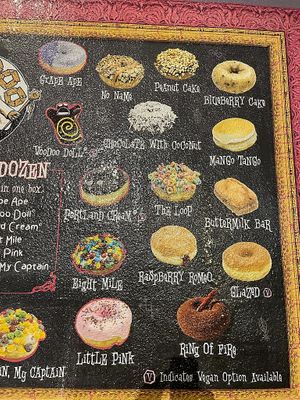 Grape Ape
No Name
Peanut Cake
Blueberry Cake
Voodoo Doll
Chocolate With Coconut
Mango Tango
DOZEN
in one box.
Ape
Doll
Cream
Mile
Pink
My Captain
Portland Cream
The Loop
Buttermilk Bar
Eight Mile
Raspberry Romeo
Glazed V
My Captain
Little Pink
Ring Of Fire
V Indicates Vegan Option Available